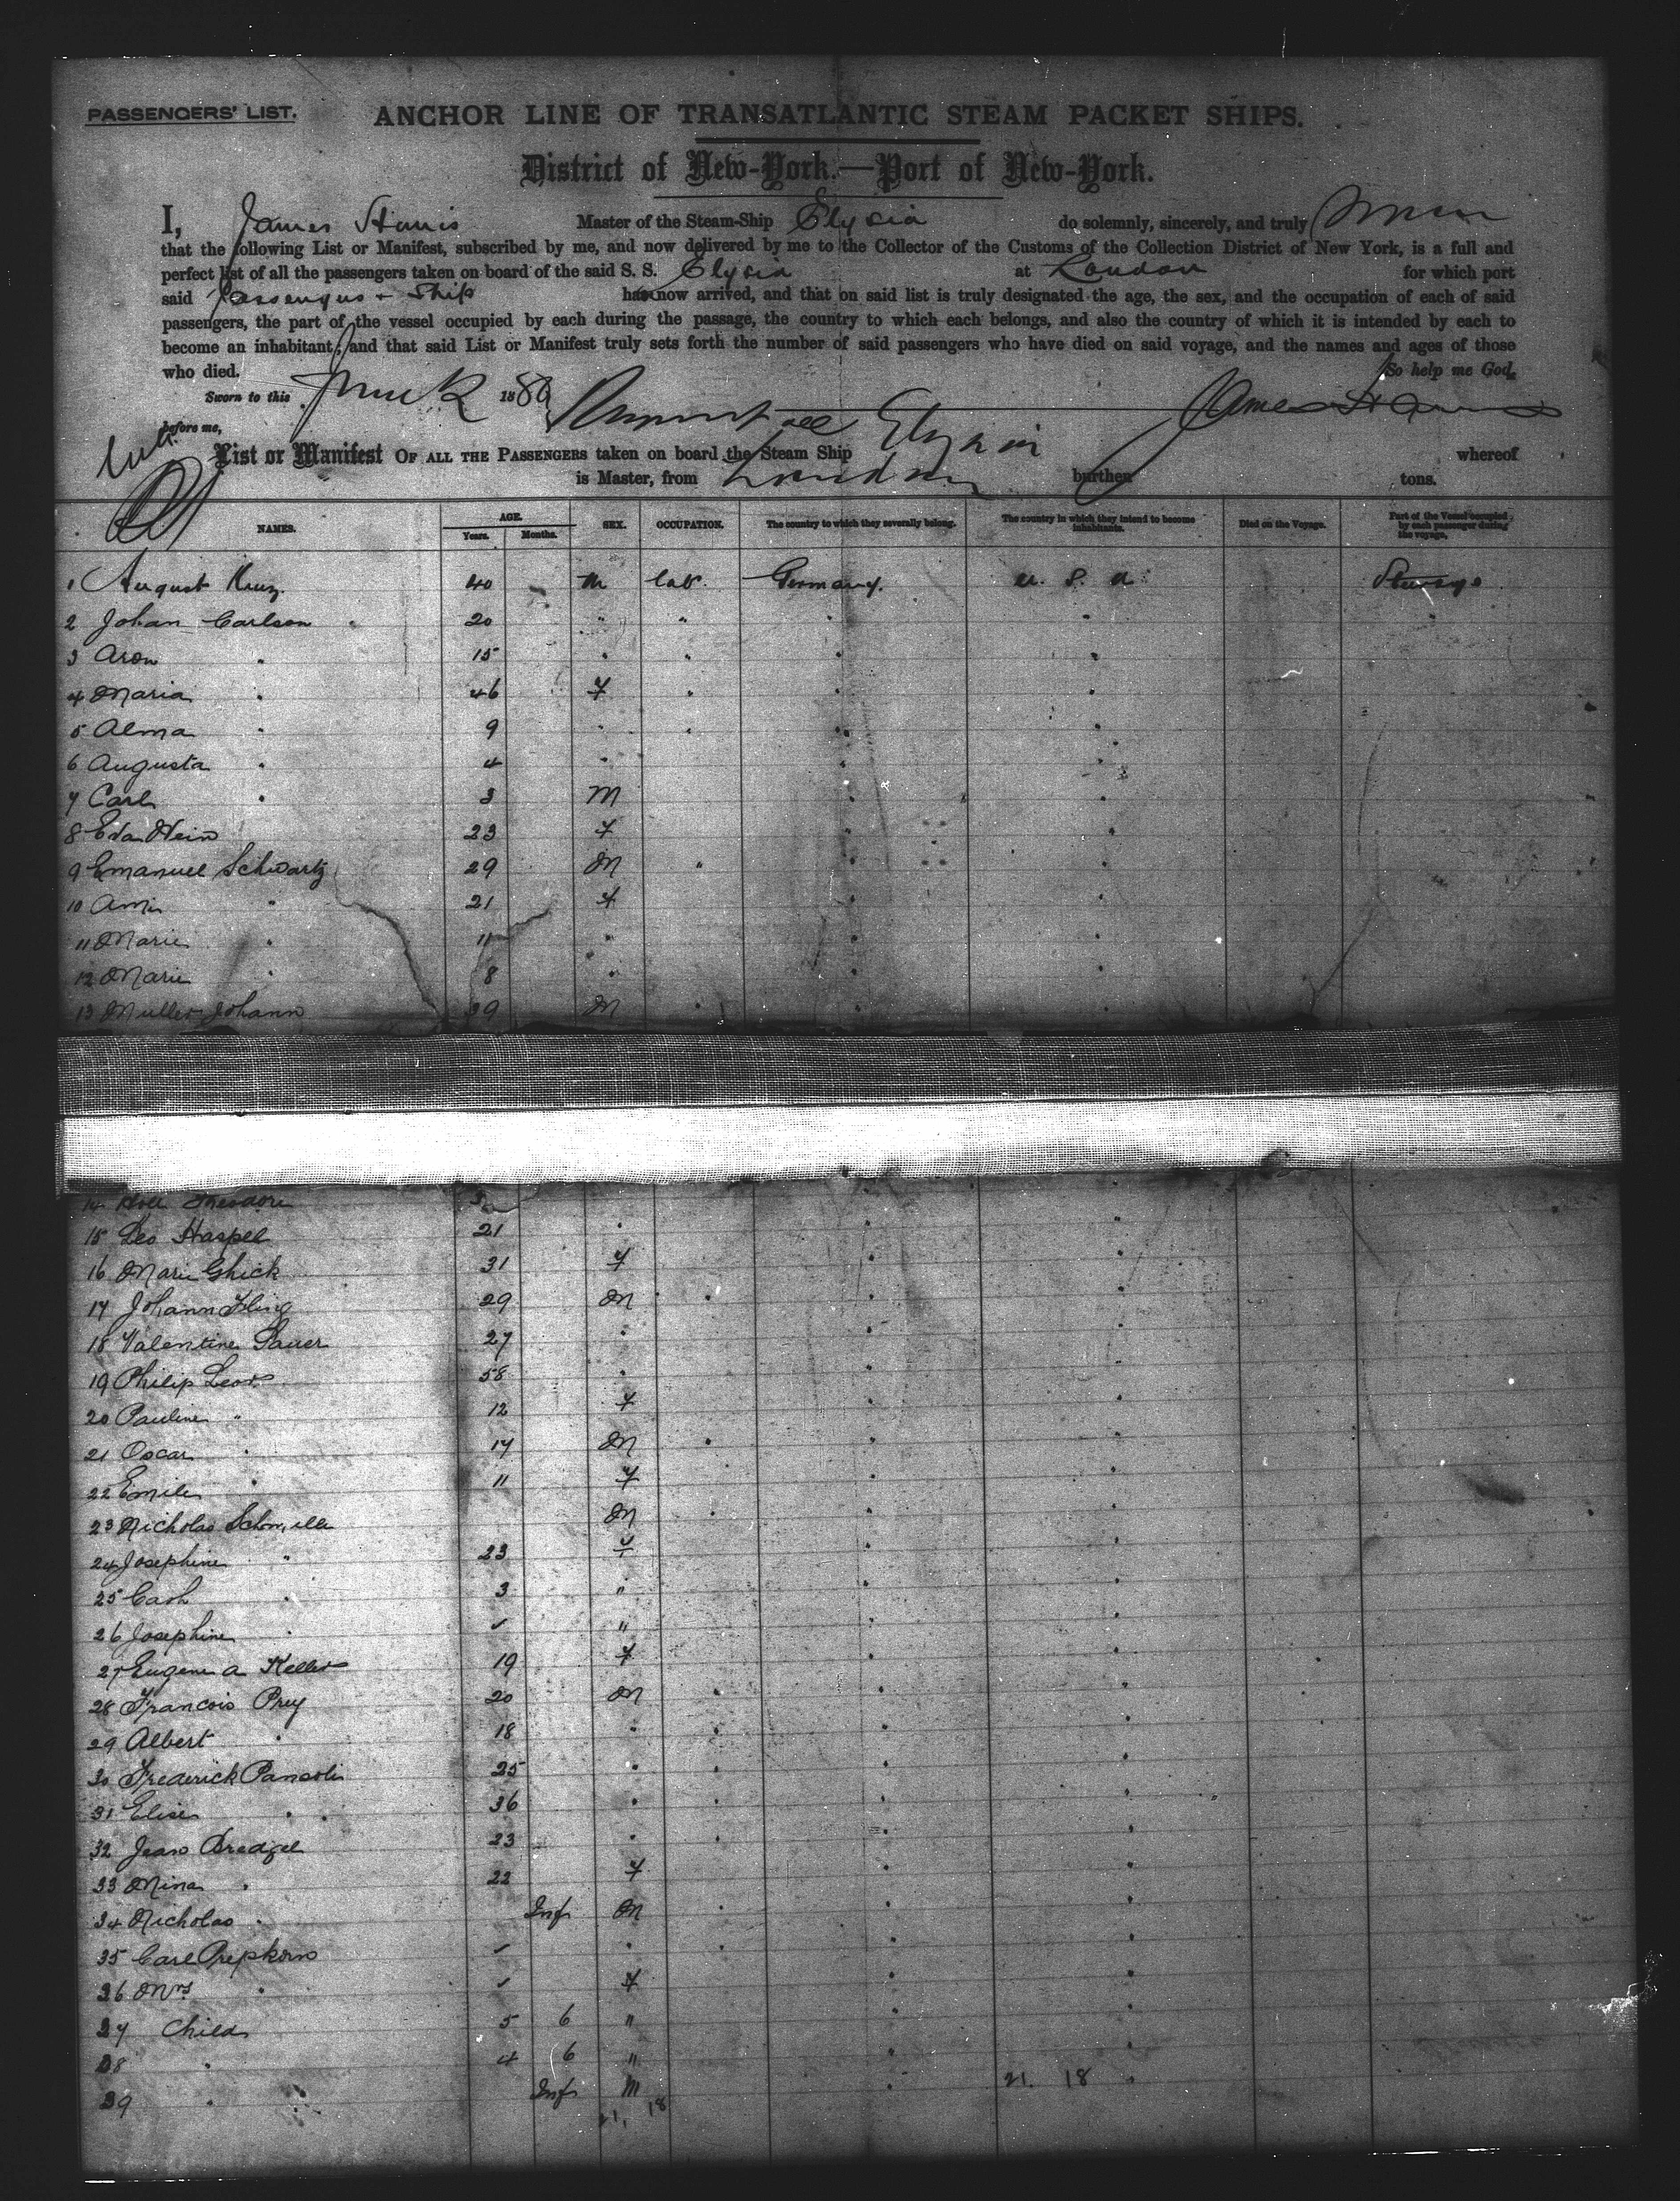 PASSENGERS' LIST. ANCHOR LINE OF TRANSATLANTIC STEAM PACKET SHIPS.
District of New-York.—Port of New-York.
I, James Master of the Steam-Ship Elysia do solemnly, sincerely, and truly
that the following List or Manifest, subscribed by me, and now delivered by me to the Collector of the Customs of the Collection District of New York, is a full and
perfect list of all the passengers taken on board of the said S. S. Elysia at London for which port
said Passengers + Ship has now arrived, and that on said list is truly designated the age, the sex, and the occupation of each of said
passengers, the part of the vessel occupied by each during the passage, the country to which each belongs, and also the country of which it is intended by each to
become an inhabitant; and that said List or Manifest truly sets forth the number of said passengers who have died on said voyage, and the names and ages of those
who died. So help me God.
Sworn to this 1880 James
before me,
List or Manifest OF ALL THE PASSENGERS taken on board the Steam Ship Elysia whereof
is Master, from London burthen tons.
NAMES. AGE. Years. Months. SEX. OCCUPATION. The country to which they severally belong. The country in which they intend to become inhabitants. Died on the Voyage. Part of the Vessel occupied by each passenger during the voyage.
1 August 40 M lab. Germany. U. S. A. Steerage
2 Johan Carlson 20 " " " "
3 Aron " 15 " " " "
4 Maria " 46 F " " "
5 Alma " 9 " " " "
6 Augusta " 4 " " "
7 Carl " 3 M " "
8 Eda Hein 23 F " "
9 Emanuel Schwartz 29 M " " "
10 " 21 F " "
11 Marie " 11 " " "
12 Marie " 8 " " "
13 Muller Johann 39 M "
14 Theodore
15 Leo Haspel 21 " " "
16 Marie Ghick 31 F " "
17 Johann 29 M " " "
18 Valentine Sauer 27 " " "
19 Philip 58 " " "
20 Pauline " 12 F " "
21 Oscar " 17 M " " "
22 Emile " 11 F " "
23 Nicholas M " " "
24 Josephine " 23 F " "
25 " 3 " " "
26 Josephine " ✓ " " "
27 Eugene a Keller 19 F " "
28 Francois Prey 20 M " " "
29 Albert " 18 " " " "
30 Frederick 25 " " " "
31 Elise " 36 " " " "
32 Jean 23 " " " "
33 Mina " 22 F " "
34 Nicholas " Inf M " " "
35 Carl Prepkorn ✓ " " " "
36 Mrs " ✓ F " "
37 Child 5 6 " " "
38 " 4 6 " " "
39 " Inf M " 21. 18 "
21, 18